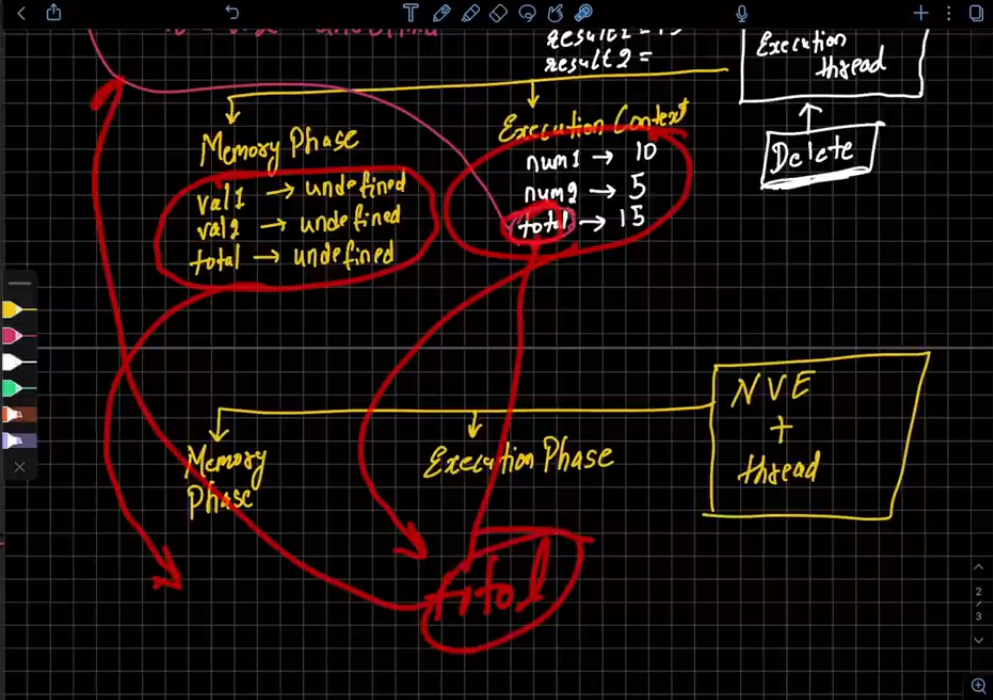 result2 =
Execution
thread
Memory Phase
val1 → undefined
val2 → undefined
total → undefined
Execution Context
num1 → 10
num2 → 5
total → 15
Delete
Memory
Phase
Execution Phase
NVE
+
thread
total
2
/
3